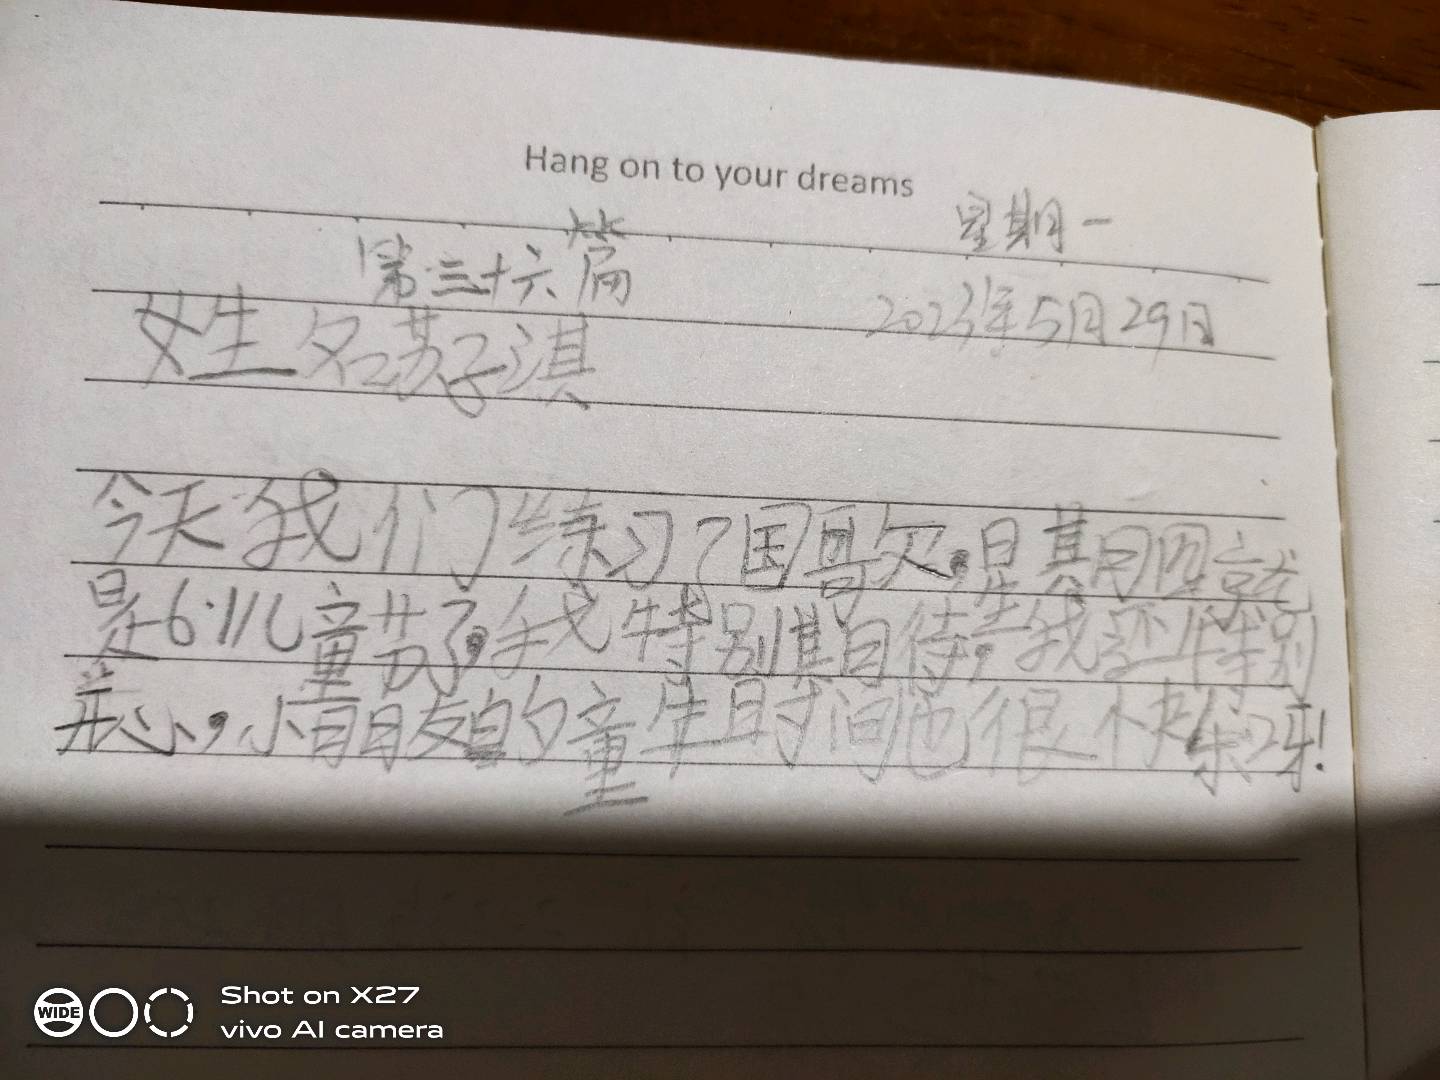 Hang on to your dreams
星期一
第三十六篇
2023年5月29日
姓名苏子淇
今天我们练习了国歌,星期四就
是6·1儿童节了,我特别期待,我还特别
开心,小朋友的童年时间也很快乐呀!
WIDE
Shot on X27
vivo AI camera